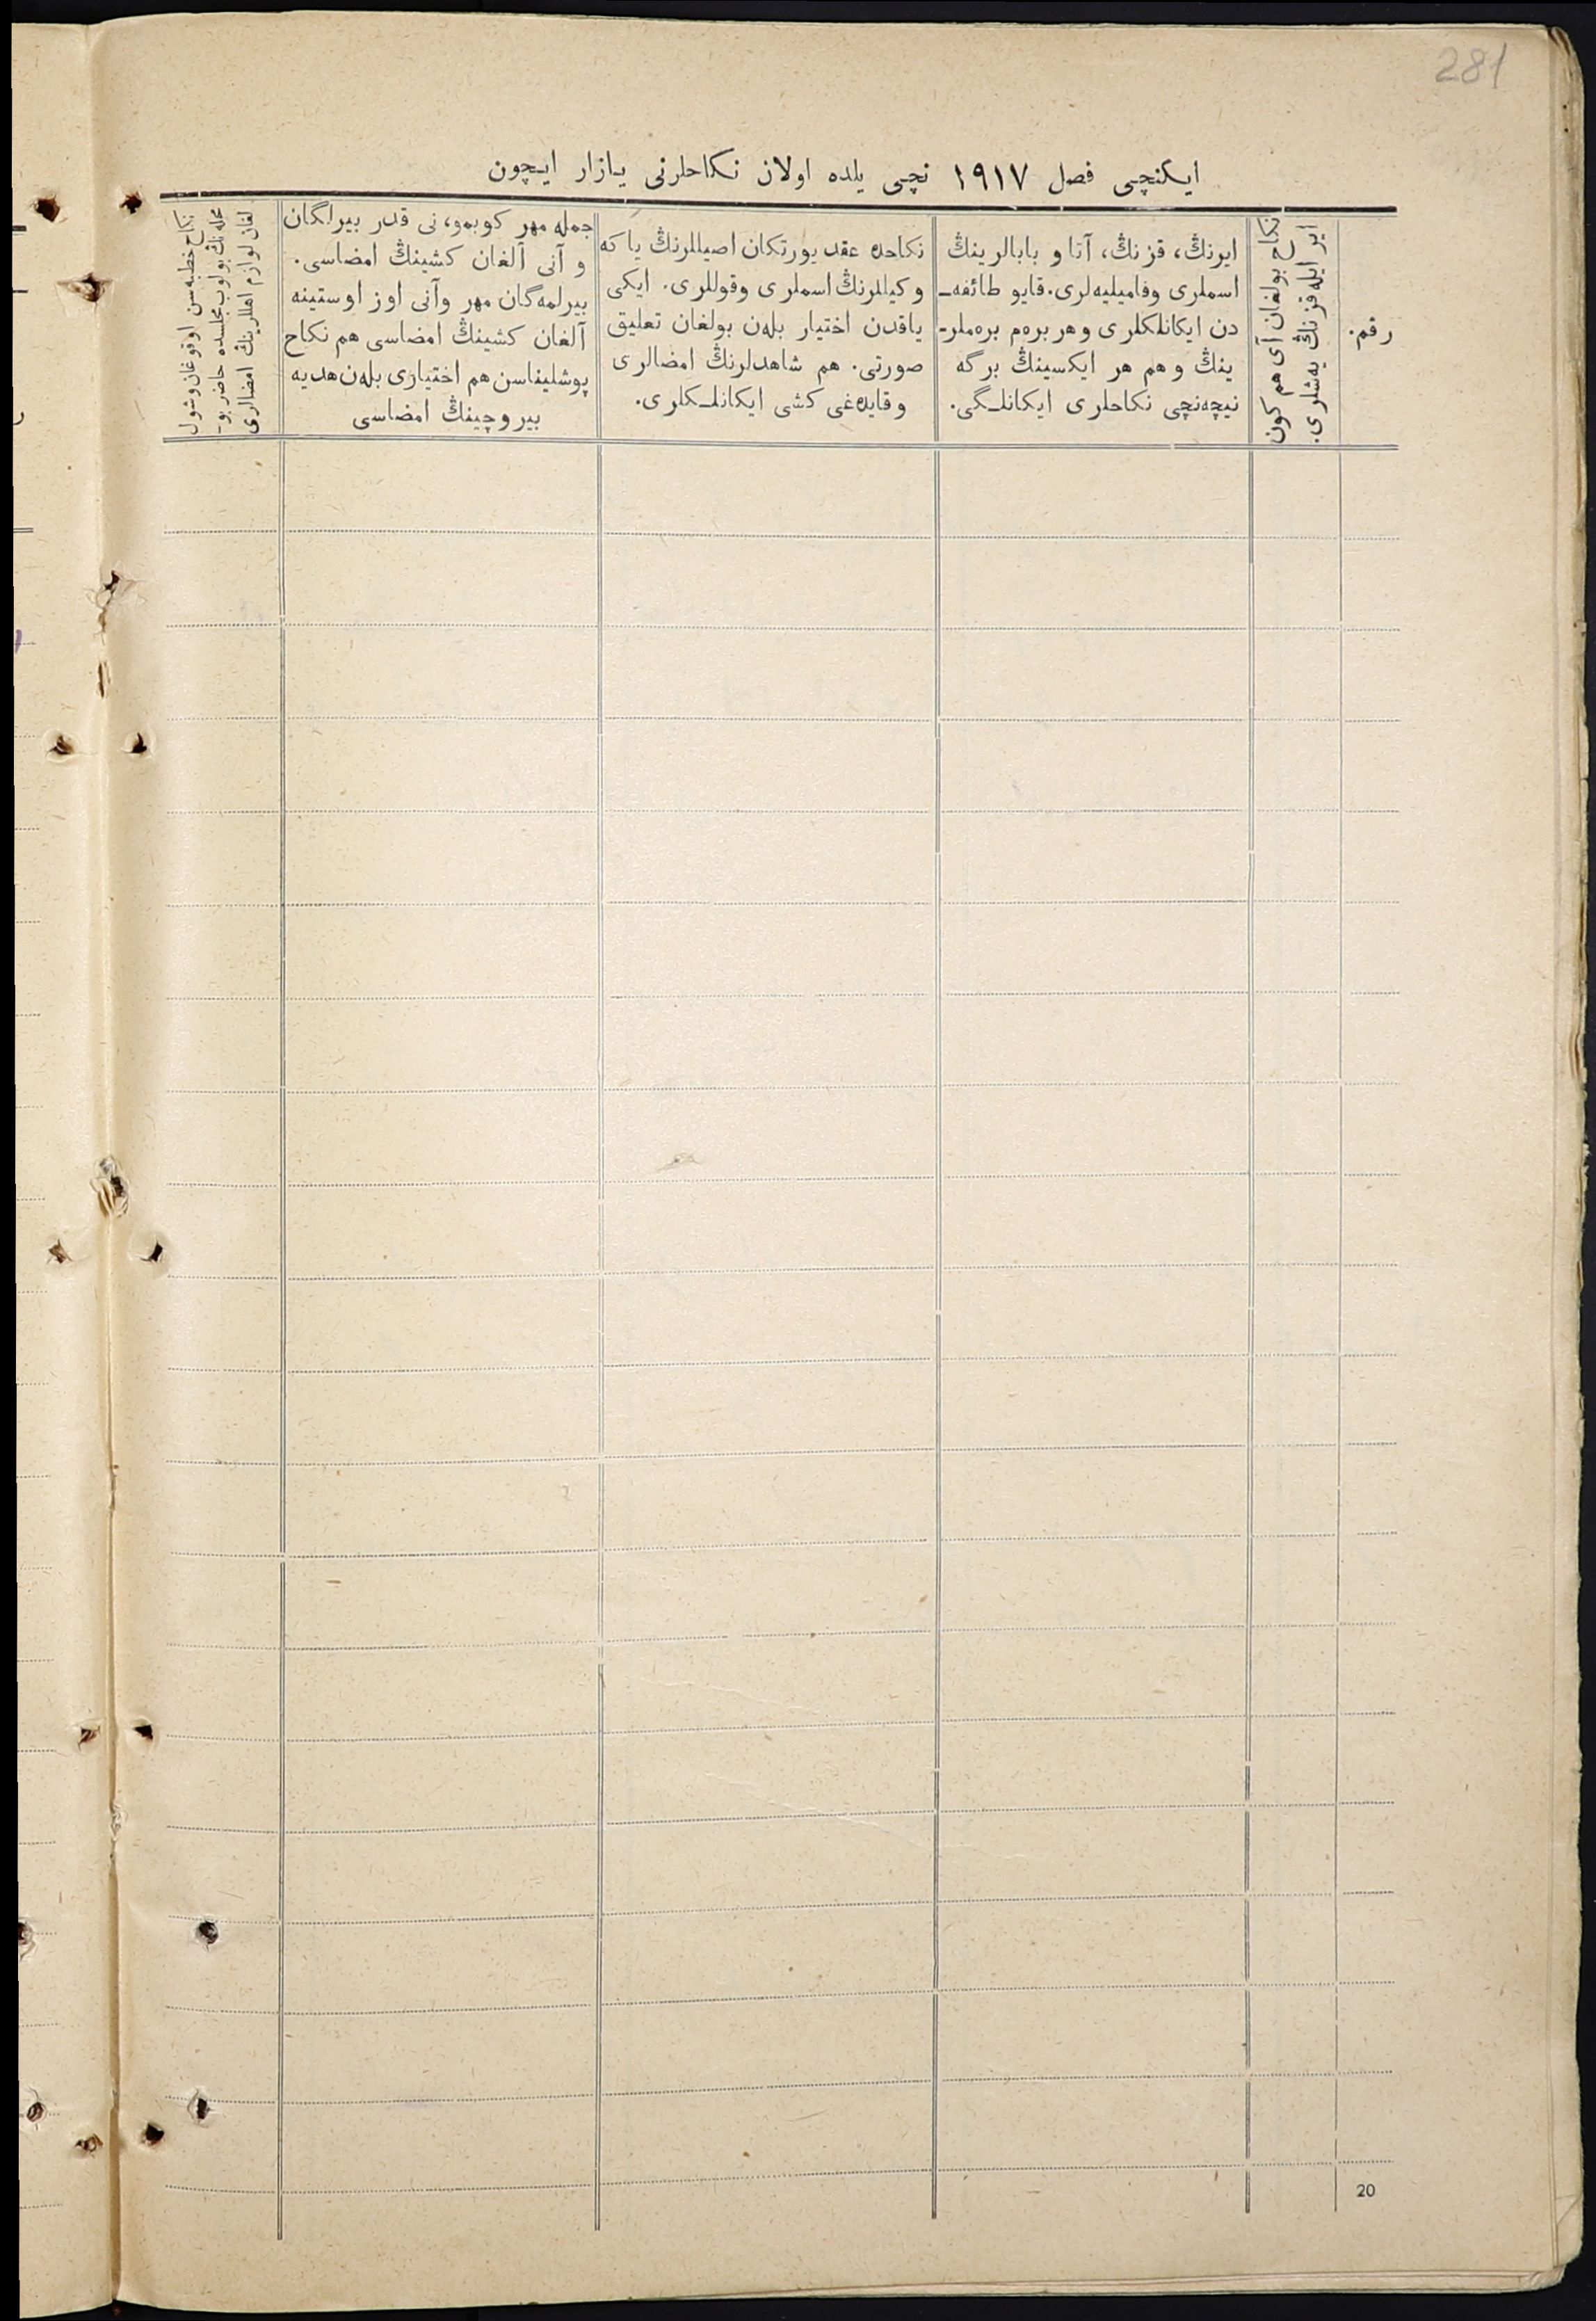 281
ایکنچی فصل ١٩١٧ نچی یلده اولان نکاحلرنی یازار ایچون
رقم.
نکاح بولغان آی هم کون
ایر ایله قزنڭ یەشلری.
ایرنڭ، قزنڭ، آتا و بابالرینڭ
اسملری وفامیلیەلری. قایو طائفه‌ـ
دن ایکانلکلری وهر برەم برەملر-
ینڭ وهم هر ایکسینڭ برگه
نیچەنچی نکاحلری ایکانلـگی.
نکاحده عقد یورتکان اصیللرنڭ یا که
وکیللرنڭ اسملری وقوللری. ایکی
یاقدن اختیار بلەن بولغان تعلیق
صورتی. هم شاهدلرنڭ امضالری
وقایدەغی کشی ایکانلـکلری.
جمله مهر کوبمو، نی قدر بیرلگان
و آنی آلغان کشینڭ امضاسی.
بیرلمەگان مهر وآنی اوز اوستینه
آلغان کشینڭ امضاسی هم نکاح
پوشلیناسن هم اختیاری بلەن هدیه
بیروچینڭ امضاسی
نکاح خطبه‌سن اوقوغان وشول
محله‌نڭ بولوب مجلسده حاضر بو-
لغان لوازم اهللرینڭ امضالری
20